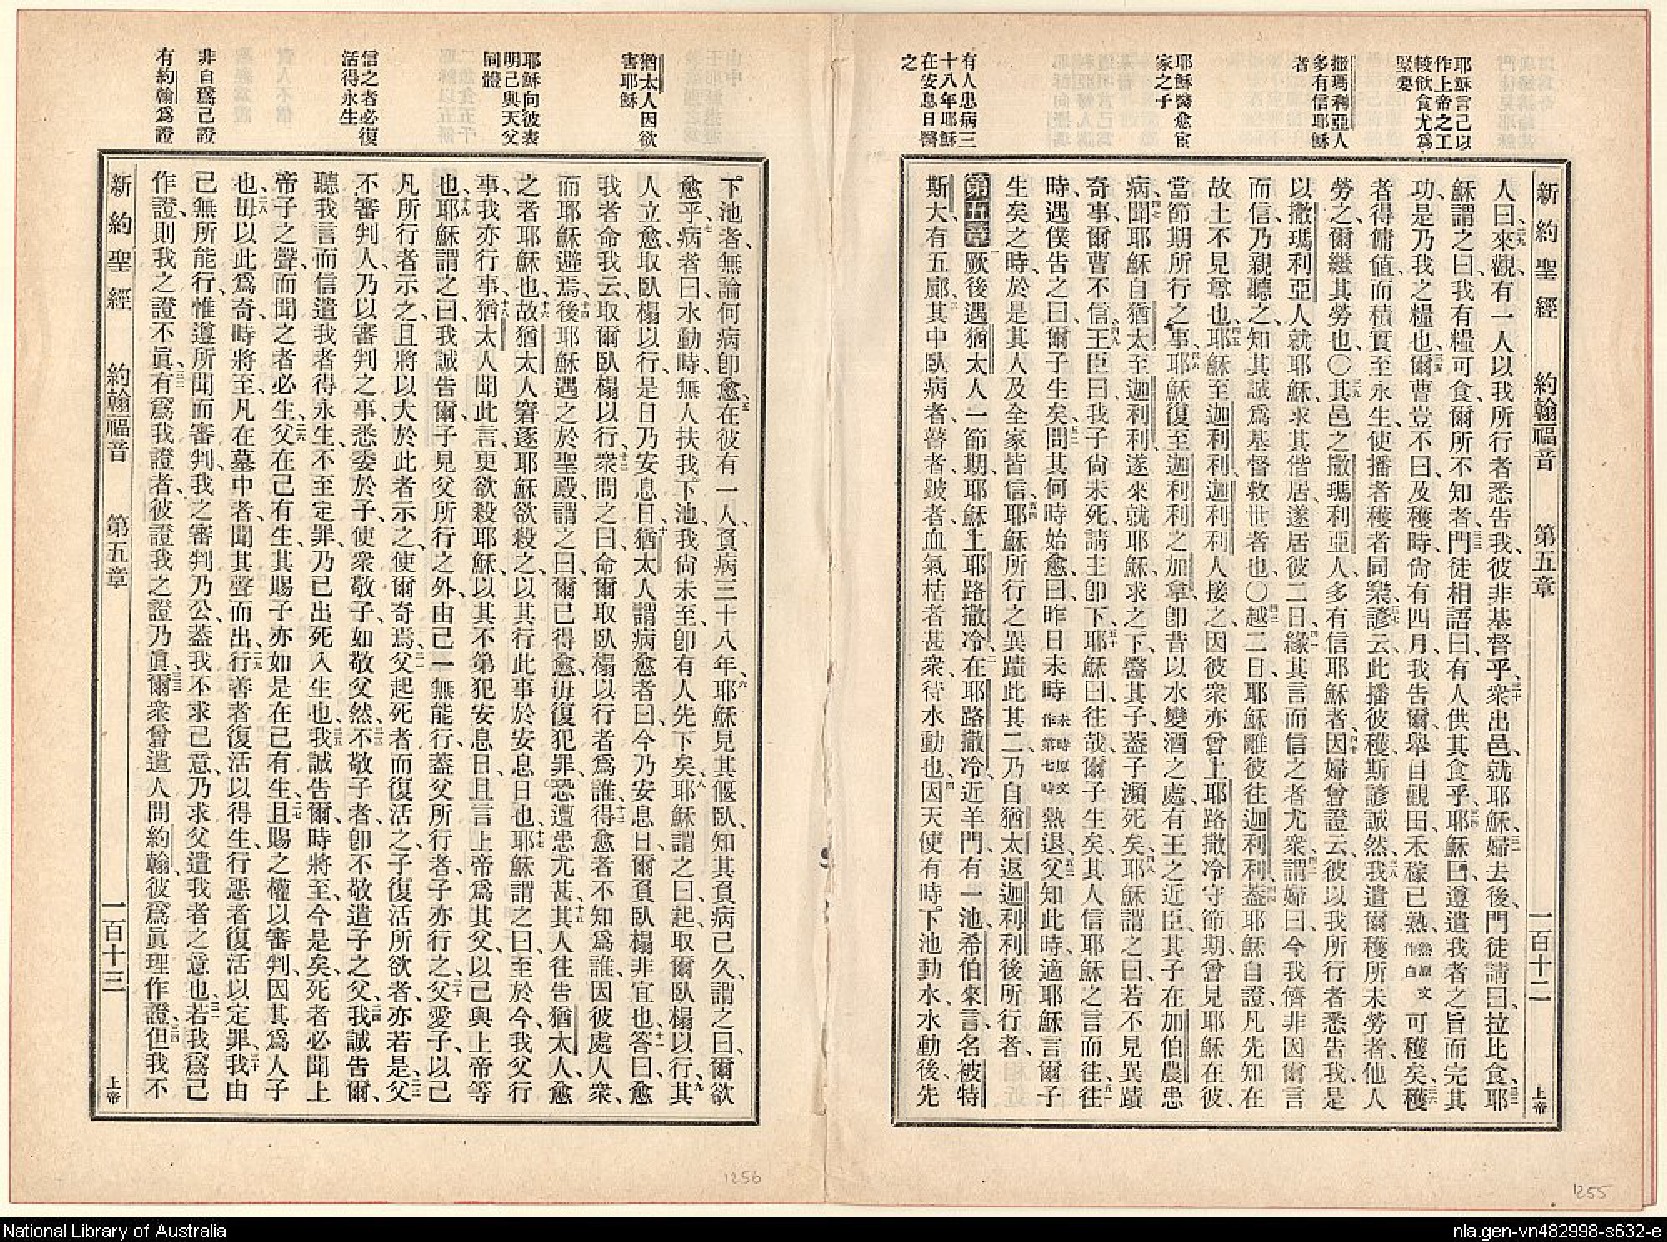 耶穌言己以
作上帝之工
較飲食尤爲
緊要
撒瑪利亞人
多有信耶穌
者
耶穌醫愈宦
家之子
有人患病三
十八年耶穌
在安息日醫
之
新約聖經 約翰福音 第五章 一百十二 上帝
人曰、二九來觀、有一人以我所行者悉告我、彼非基督乎、三十衆出邑、就耶穌、三一婦去後、門徒請曰、拉比食、三二耶
穌謂之曰、我有糧可食、爾所不知者、三三門徒相語曰、有人供其食乎、三四耶穌曰、遵遣我者之旨、而完其
功、是乃我之糧也、三五爾曹豈不曰、及穫時尙有四月、我告爾、舉目觀田、禾稼已熟、熟原文作白可穫矣、三六穫
者得傭值、而積實至永生、使播者穫者同樂、三七諺云、此播彼穫、斯諺誠然、三八我遣爾穫所未勞者、他人
勞之、爾繼其勞也、〇三九其邑之撒瑪利亞人、多有信耶穌者、因婦曾證云、彼以我所行者悉告我、四十是
以撒瑪利亞人就耶穌、求其偕居、遂居彼二日、四一緣其言而信之者尤衆、四二謂婦曰、今我儕非因爾言
而信、乃親聽之、知其誠爲基督救世者也、〇四三越二日、耶穌離彼往迦利利、四四蓋耶穌自證、凡先知在
故土不見尊也、四五耶穌至迦利利、迦利利人接之、因彼衆亦曾上耶路撒冷守節期、曾見耶穌在彼、
當節期所行之事、四六耶穌復至迦利利之加拿、卽昔以水變酒之處、有王之近臣、其子在加伯農患
病、四七聞耶穌自猶太至迦利利、遂來就耶穌、求之下、醫其子、蓋子瀕死矣、四八耶穌謂之曰、若不見異蹟
奇事、爾曹不信、四九王臣曰、我子尙未死、請主卽下、五十耶穌曰、往哉、爾子生矣、其人信耶穌之言而往、五一往
時、遇僕告之曰、爾子生矣、五二問其何時始愈、曰、昨日未時未時原文作第七時熱退、五三父知此時、適耶穌言爾子
生矣之時、於是其人及全家皆信、五四耶穌所行之異蹟、此其二、乃自猶太返迦利利後所行者、
第五章 厥後遇猶太人一節期、耶穌上耶路撒冷、二在耶路撒冷近羊門、有一池、希伯來言名被特
斯大、有五廊、三其中臥病者、瞽者、跛者、血氣枯者甚衆、待水動也、四因天使有時下池動水、水動後、先
猶太人因欲
害耶穌
耶穌向彼表
明己與天父
同體
信之者必復
活得永生
非自爲己證
有約翰爲證
下池者、無論何病卽愈、五在彼有一人、負病三十八年、六耶穌見其偃臥、知其負病已久、謂之曰、爾欲
愈乎、七病者曰、水動時、無人扶我下池、我尙未至、卽有人先下矣、八耶穌謂之曰、起、取爾臥榻以行、九其
人立愈、取臥榻以行、是日乃安息日、十猶太人謂病愈者曰、今乃安息日、爾負臥榻非宜也、十一答曰、愈
我者命我云、取爾臥榻以行、十二衆問之曰、命爾取臥榻以行者爲誰、十三得愈者不知爲誰、因彼處人衆、
而耶穌避焉、十四後耶穌遇之於聖殿、謂之曰、爾已得愈、毋復犯罪、恐遭患尤甚、十五其人往告猶太人、愈
之者耶穌也、十六故猶太人窘逐耶穌、欲殺之、以其行此事於安息日也、十七耶穌謂之曰、至於今、我父行
事、我亦行事、十八猶太人聞此言、更欲殺耶穌、以其不第犯安息日、且言上帝爲其父、以己與上帝等
也、十九耶穌謂之曰、我誠告爾、子見父所行之外、由己一無能行、蓋父所行者、子亦行之、二十父愛子、以己
凡所行者示之、且將以大於此者示之、使爾奇焉、二一父起死者而復活之、子復活所欲者、亦若是、二二父
不審判人、乃以審判之事、悉委於子、二三使衆敬子、如敬父然、不敬子者、卽不敬遣子之父、二四我誠告爾、
聽我言而信遣我者、得永生、不至定罪、乃已出死入生也、二五我誠告爾、時將至、今是矣、死者必聞上
帝子之聲、而聞之者必生、二六父在己有生、其賜子亦如是在己有生、二七且賜之權以審判、因其爲人子
也、二八毋以此爲奇、時將至、凡在墓中者、聞其聲而出、二九行善者、復活以得生、行惡者、復活以定罪、三十我由
己無所能行、惟遵所聞而審判、我之審判乃公、蓋我不求己意、乃求父遣我者之意也、三一若我爲己
作證、則我之證不眞、三二有爲我證者、彼證我之證乃眞、三三爾衆曾遣人問約翰、彼爲眞理作證、三四但我不
新約聖經 約翰福音 第五章 一百十三 上帝
1256
1255
National Library of Australia
nla.gen-vn482998-s632-e